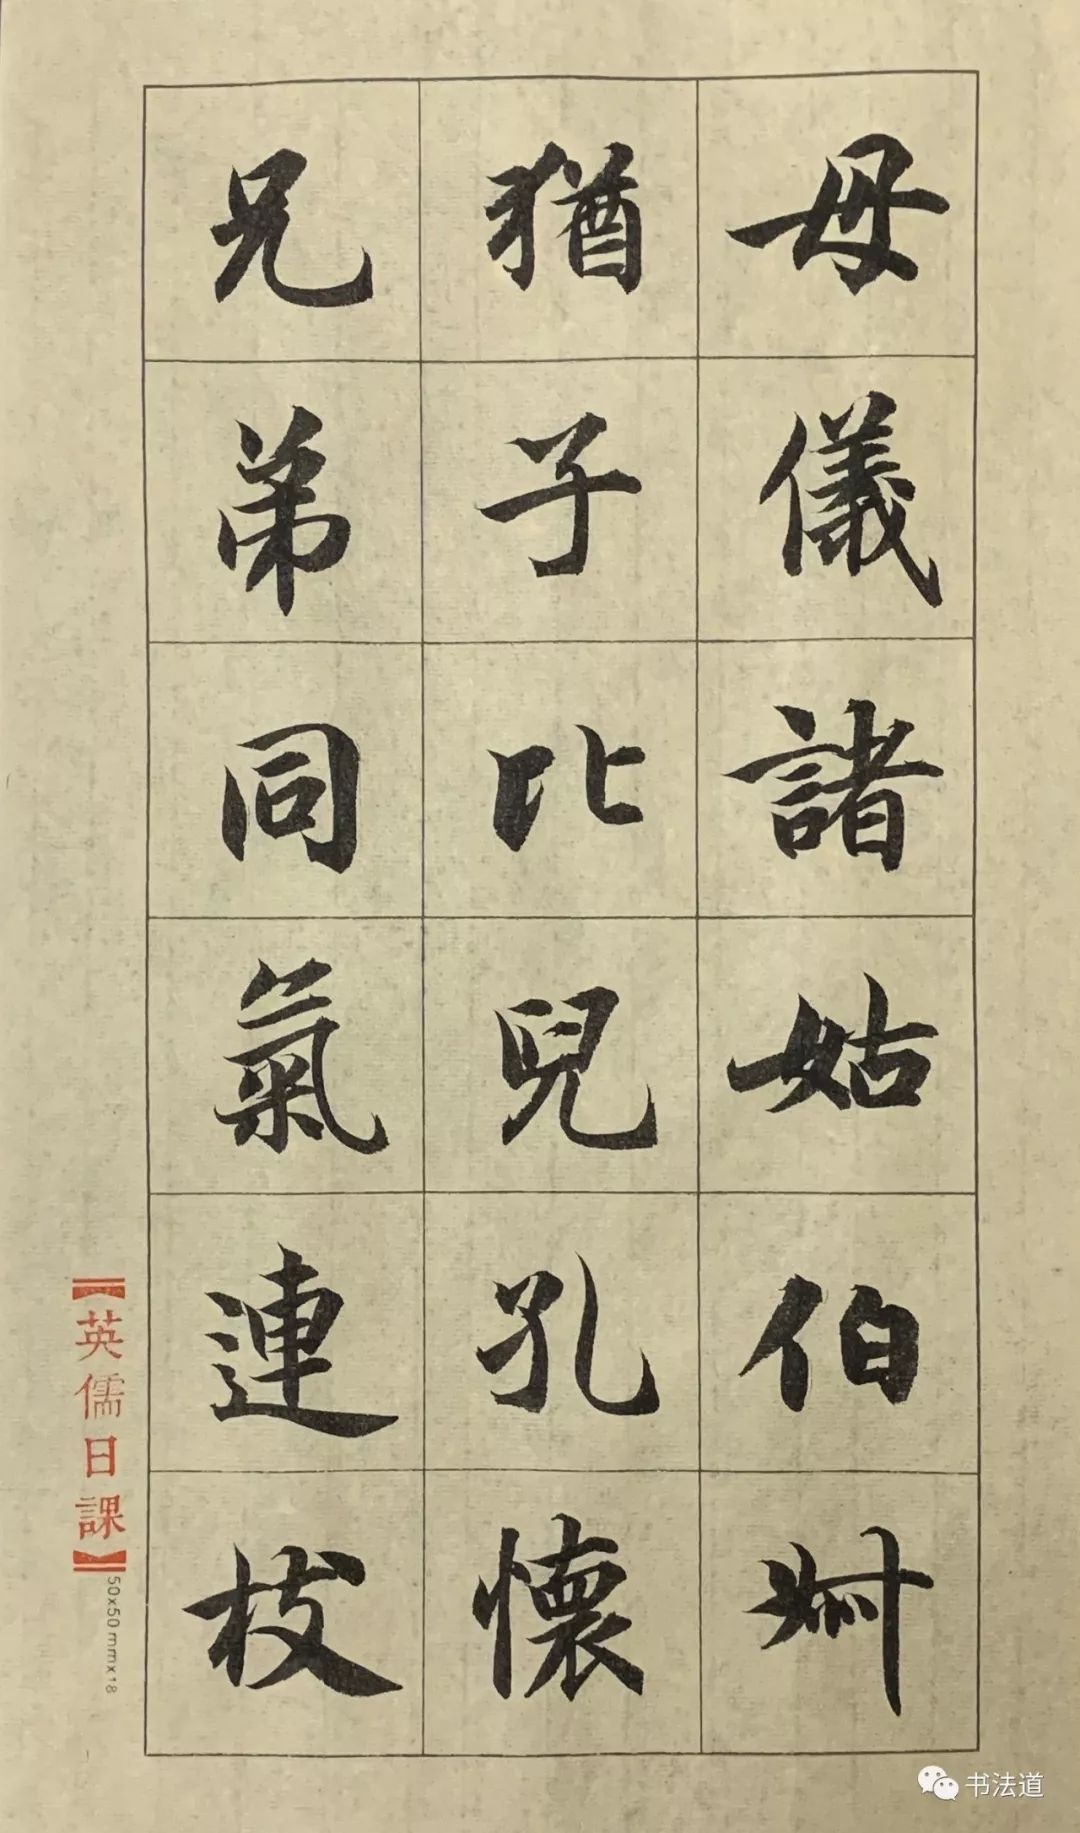 母儀諸姑伯叔
猶子比兒孔懷
兄弟同氣連枝
【英儒日課】
50x50mmx18
书法道